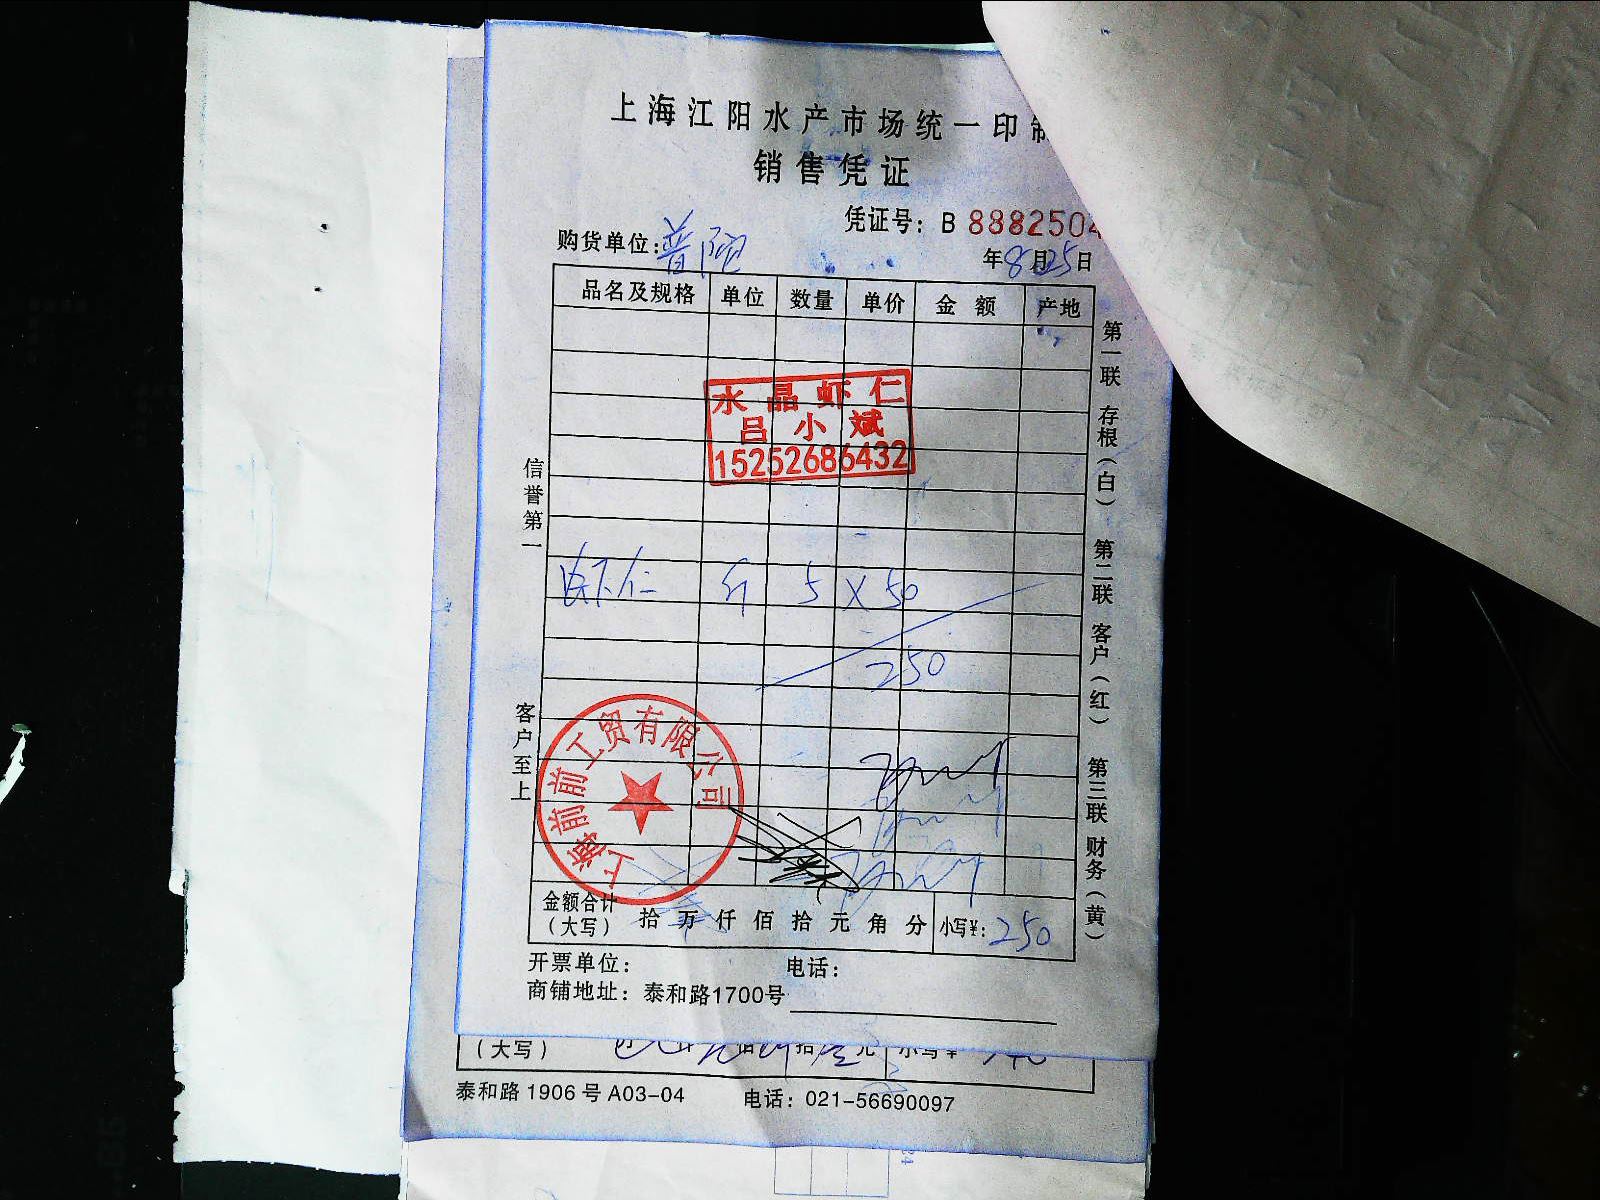 上海江阳水产市场统一印制
销售凭证
凭证号：B 8882504
购货单位：普陀
年8月25日
品名及规格 单位 数量 单价 金额 产地
水晶虾仁
吕小斌
15252686432
虾仁 斤 5 X 50
250
信誉第一
客户至上
第一联 存根（白） 第二联 客户（红） 第三联 财务（黄）
上海前前工贸有限公司
金额合计（大写） 拾 万 仟 佰 拾 元 角 分 小写¥：250
开票单位： 电话：
商铺地址：泰和路1700号
（大写） 拾 元 小写¥
泰和路1906号A03-04 电话：021-56690097